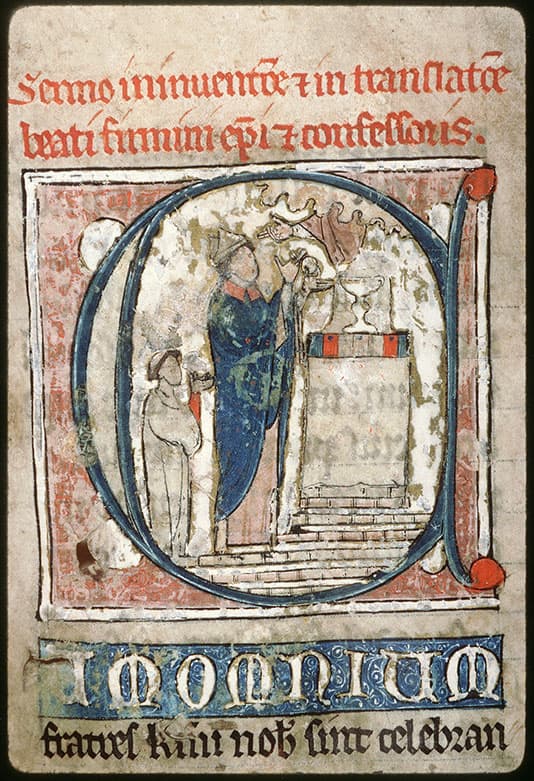 Sermo in inuentōe ⁊ in translatōe
beati firmini ep̄i ⁊ confessoris.
IMOMNIUM
fratres km̄i nob̄ sint celebran